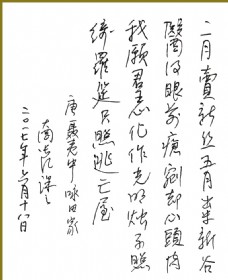 二月賣新丝五月出新谷
醫得眼前瘡剜却心頭肉
我願君王心化作光明燭不照
綺羅筵只照逃亡屋
唐聂夷中咏田家
二〇一七年六月十八日